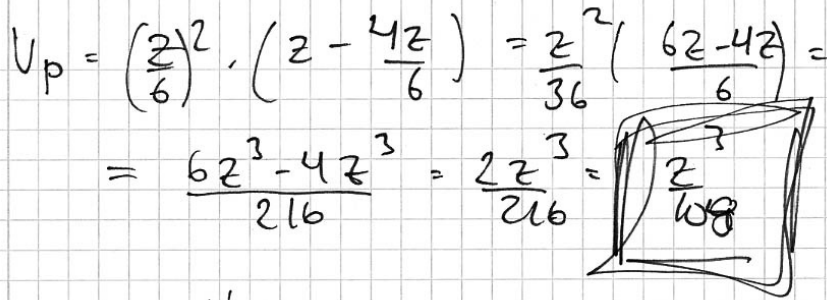 Vp = (z/6)² · (z - 4z/6) = z²/36 (6z-4z/6) =
= 6z³-4z³/216 = 2z³/216 = z³/108